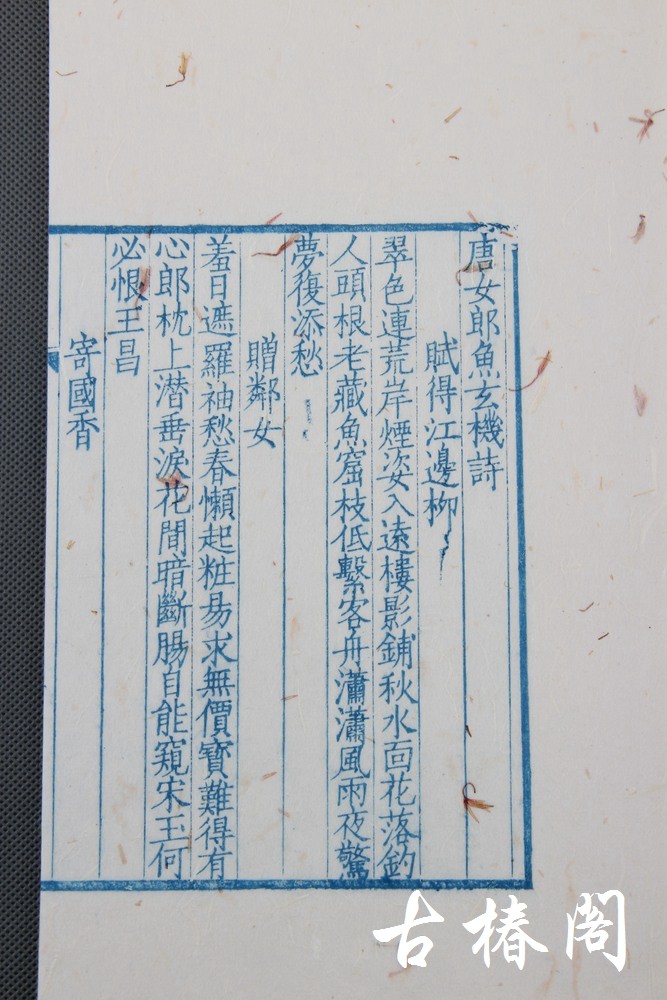 唐女郎魚玄機詩
賦得江邊柳
翠色連荒岸煙姿入遠樓影鋪秋水面花落釣
人頭根老藏魚窟枝低繫客舟瀟瀟風雨夜驚
夢復添愁
贈鄰女
羞日遮羅袖愁春懶起粧易求無價寶難得有
心郎枕上潛垂淚花間暗斷腸自能窺宋玉何
必恨王昌
寄國香
古椿閣